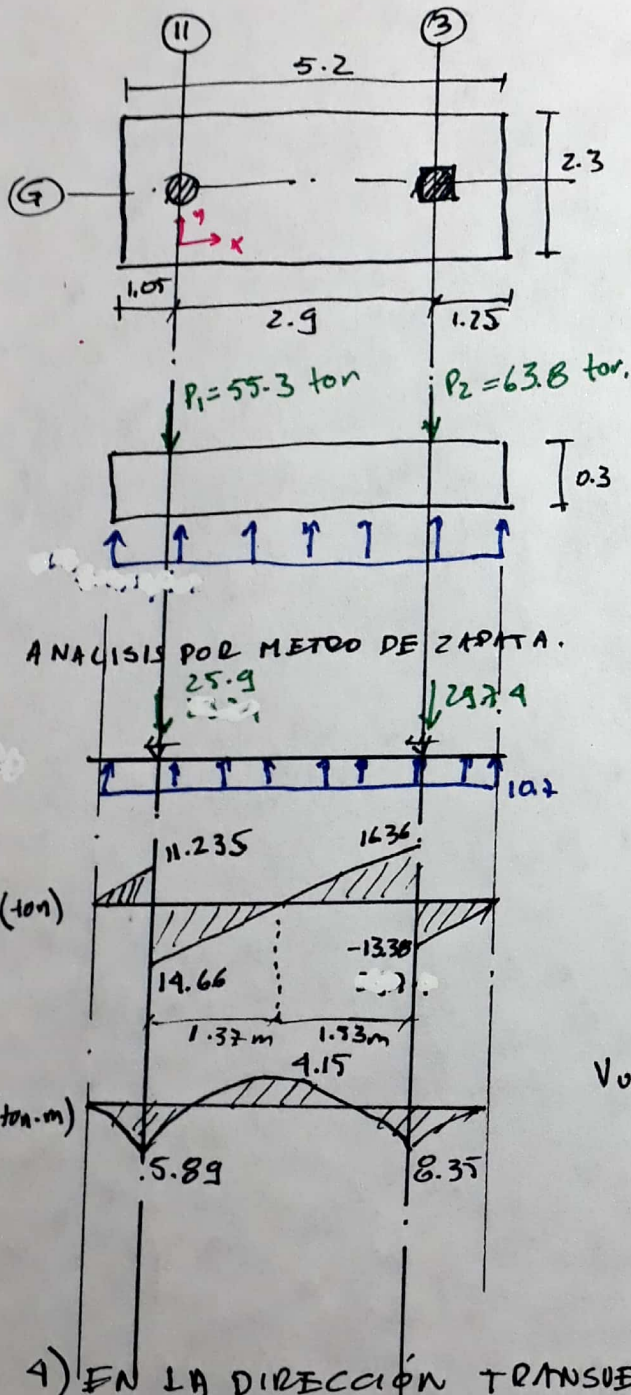 11 3
5.2
G
2.3
y
x
1.05 2.9 1.25
P₁=55.3 ton P₂=63.8 ton.
0.3
ANALISIS POR METRO DE ZAPATA.
25.9
10.7
11.235 16.36
(ton)
14.66 -13.38
1.37m 1.53m
4.15
Vu
ton.m)
5.89 8.35
4) EN LA DIRECCIÓN TRANSVE